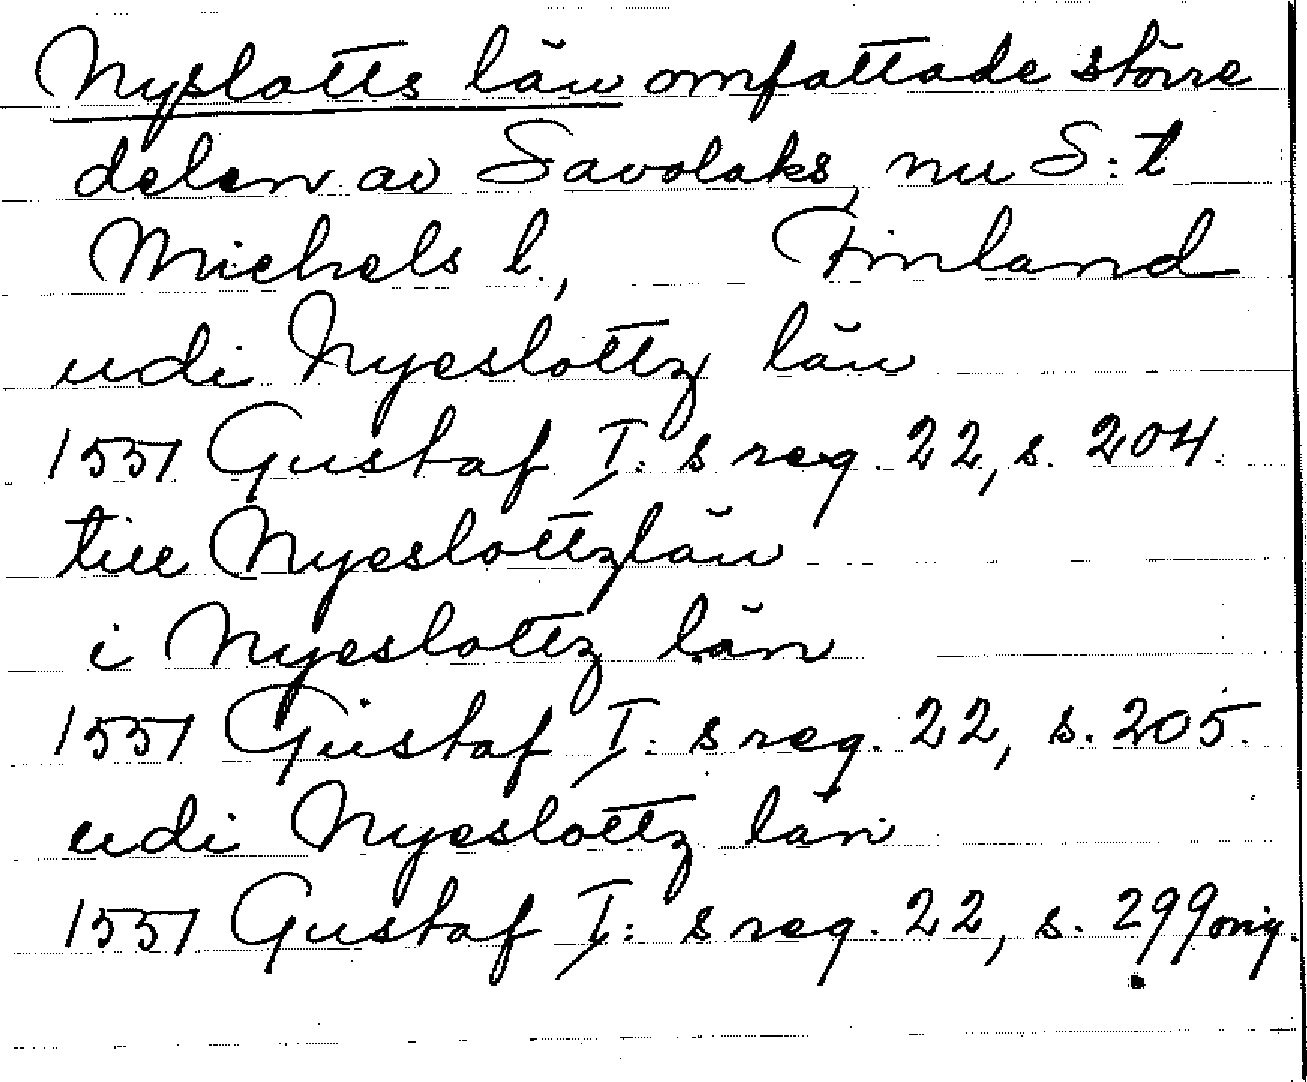 Nyslotts län omfattade större
delen av Savolaks, nu S:t
Michels l., Finland
udi Nyeslottz län
1551 Gustaf I:s reg. 22, s. 204.
till Nyeslottzlän
i Nyeslottz län
1551 Gustaf I:s reg. 22, s. 205.
udi Nyeslottz län
1551 Gustaf I:s reg. 22, s. 299 orig.